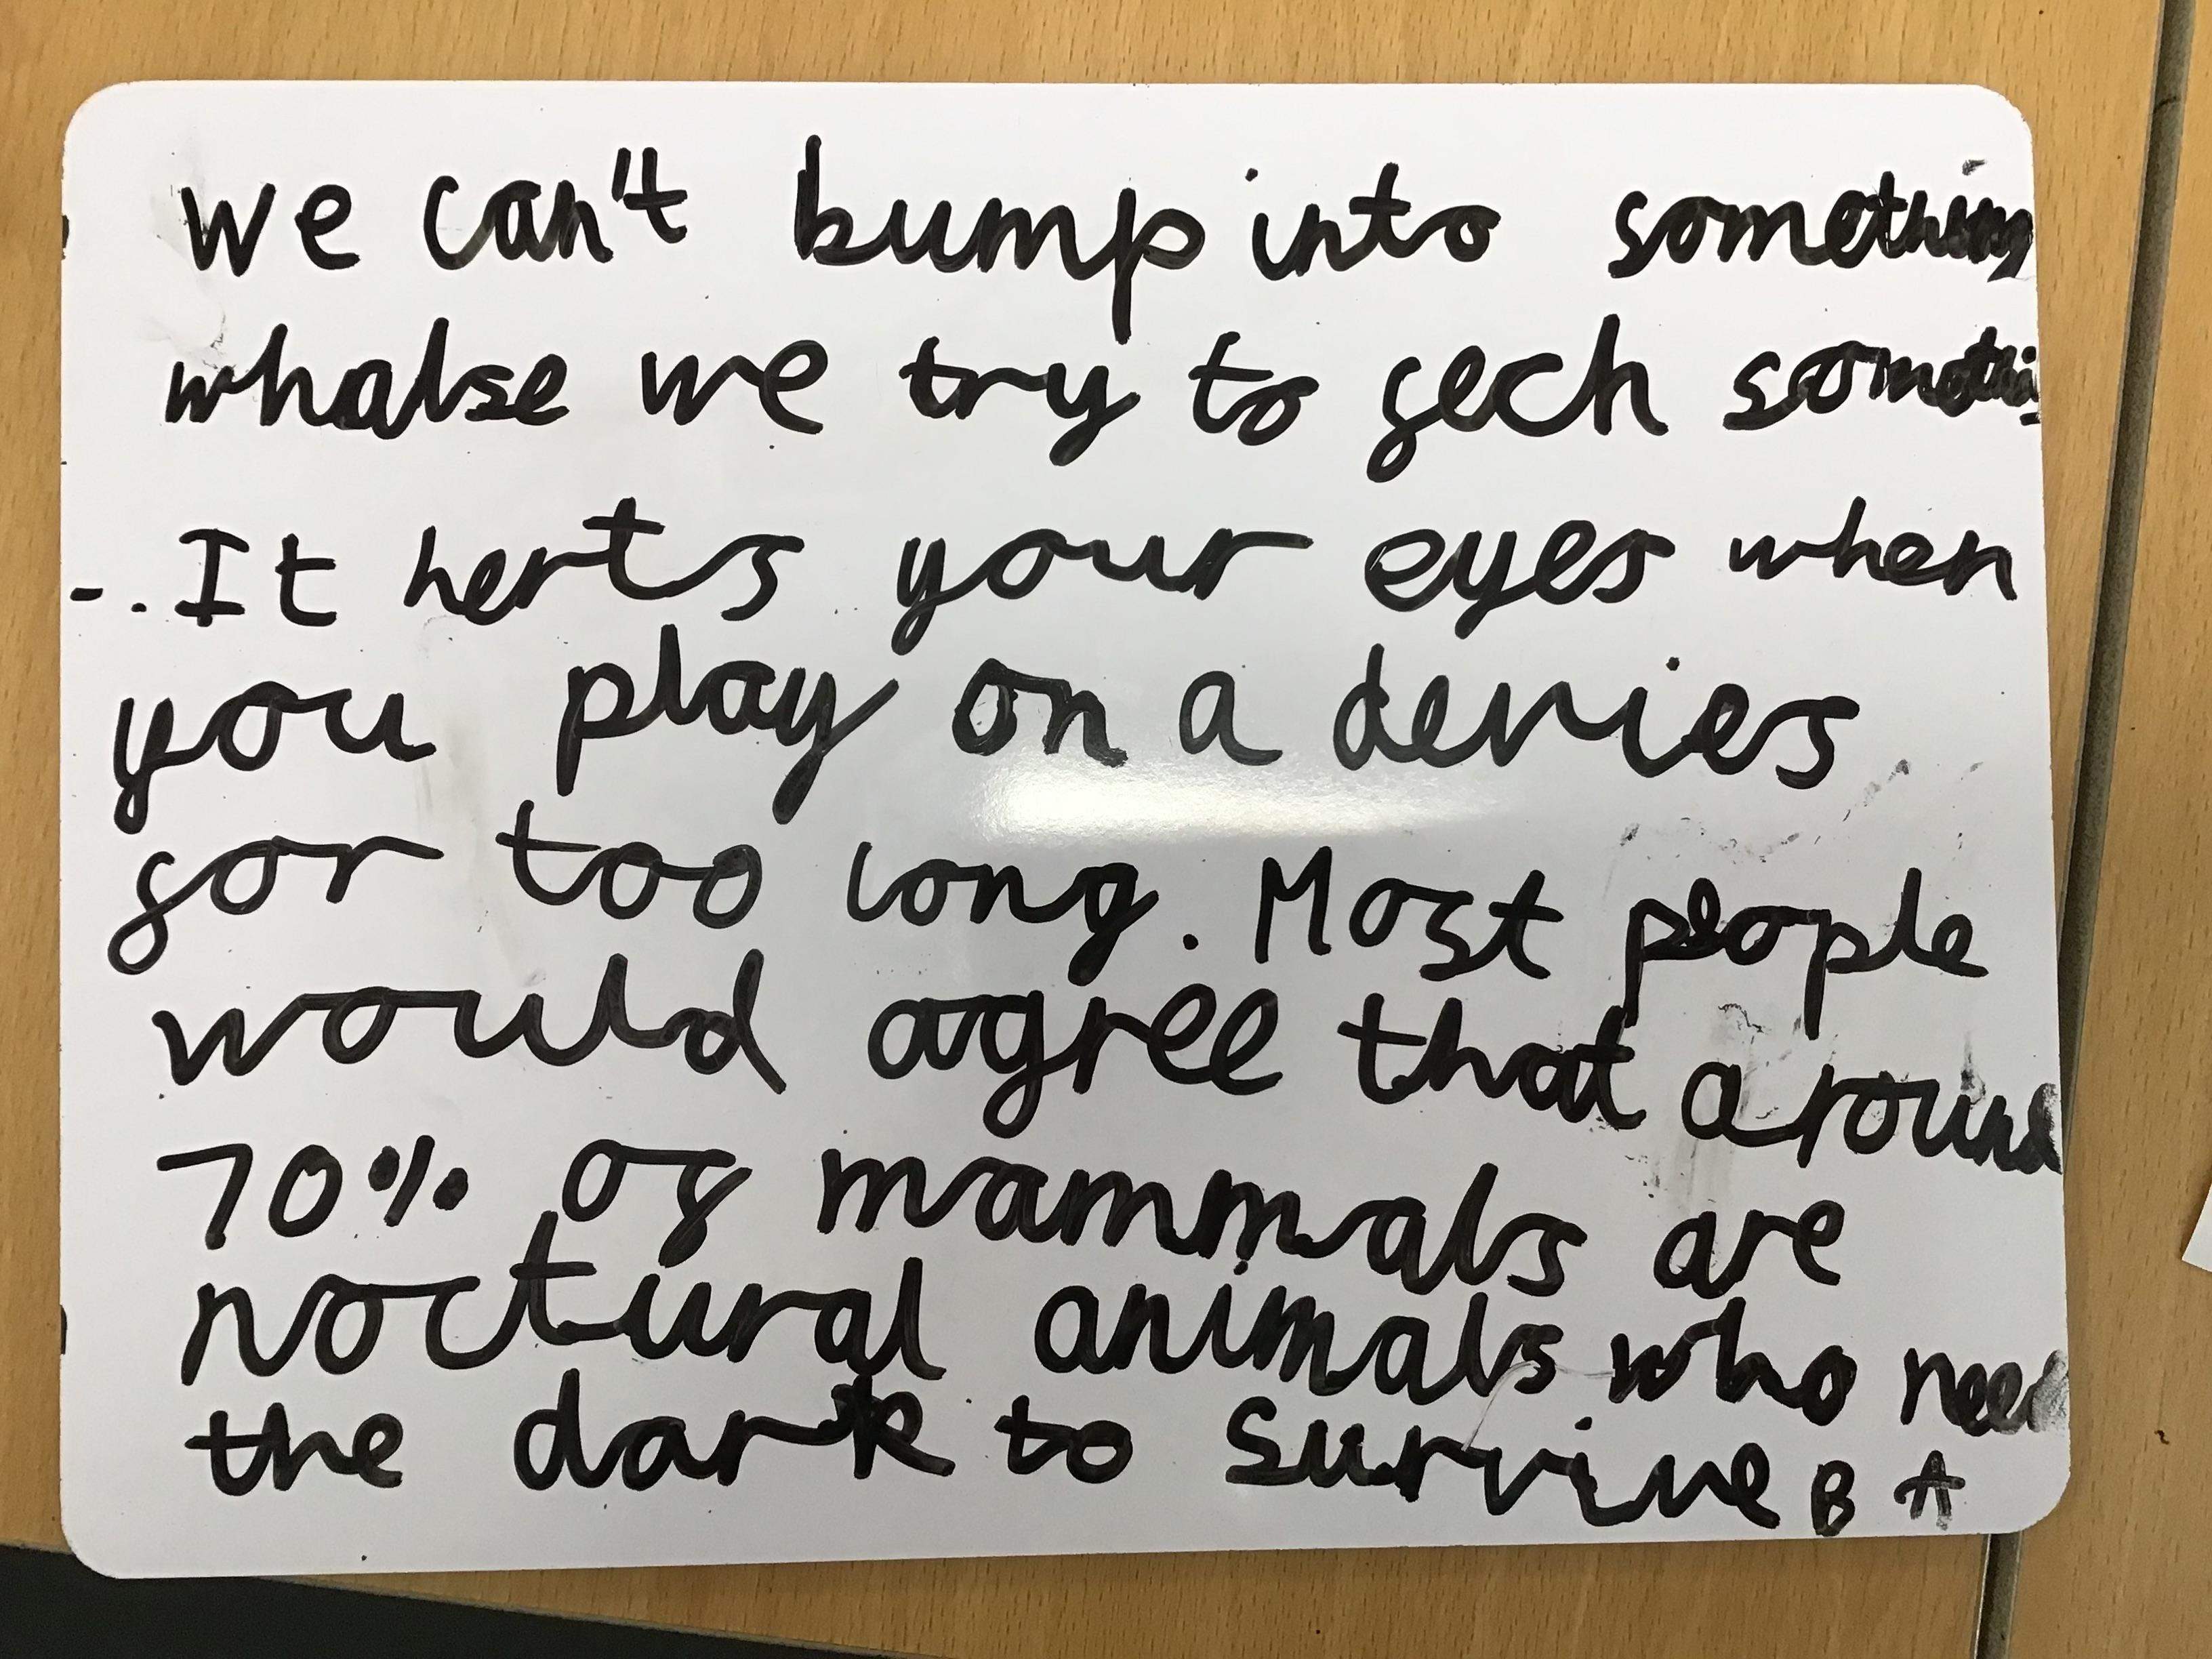 we can't bump into something
whalse we try to fech something
-. It herts your eyes when
you play on a devies
for too long. Most people
would agree that around
70% of mammals are
noctural animals who need
the dark to survive B A